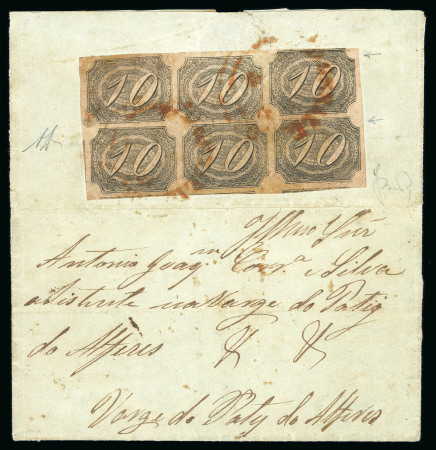 10 10 10
10 10 10
Illmo Snr
Antonio Joaqm Silva
do Paty
do Alferes
Varge do Paty do Alferes